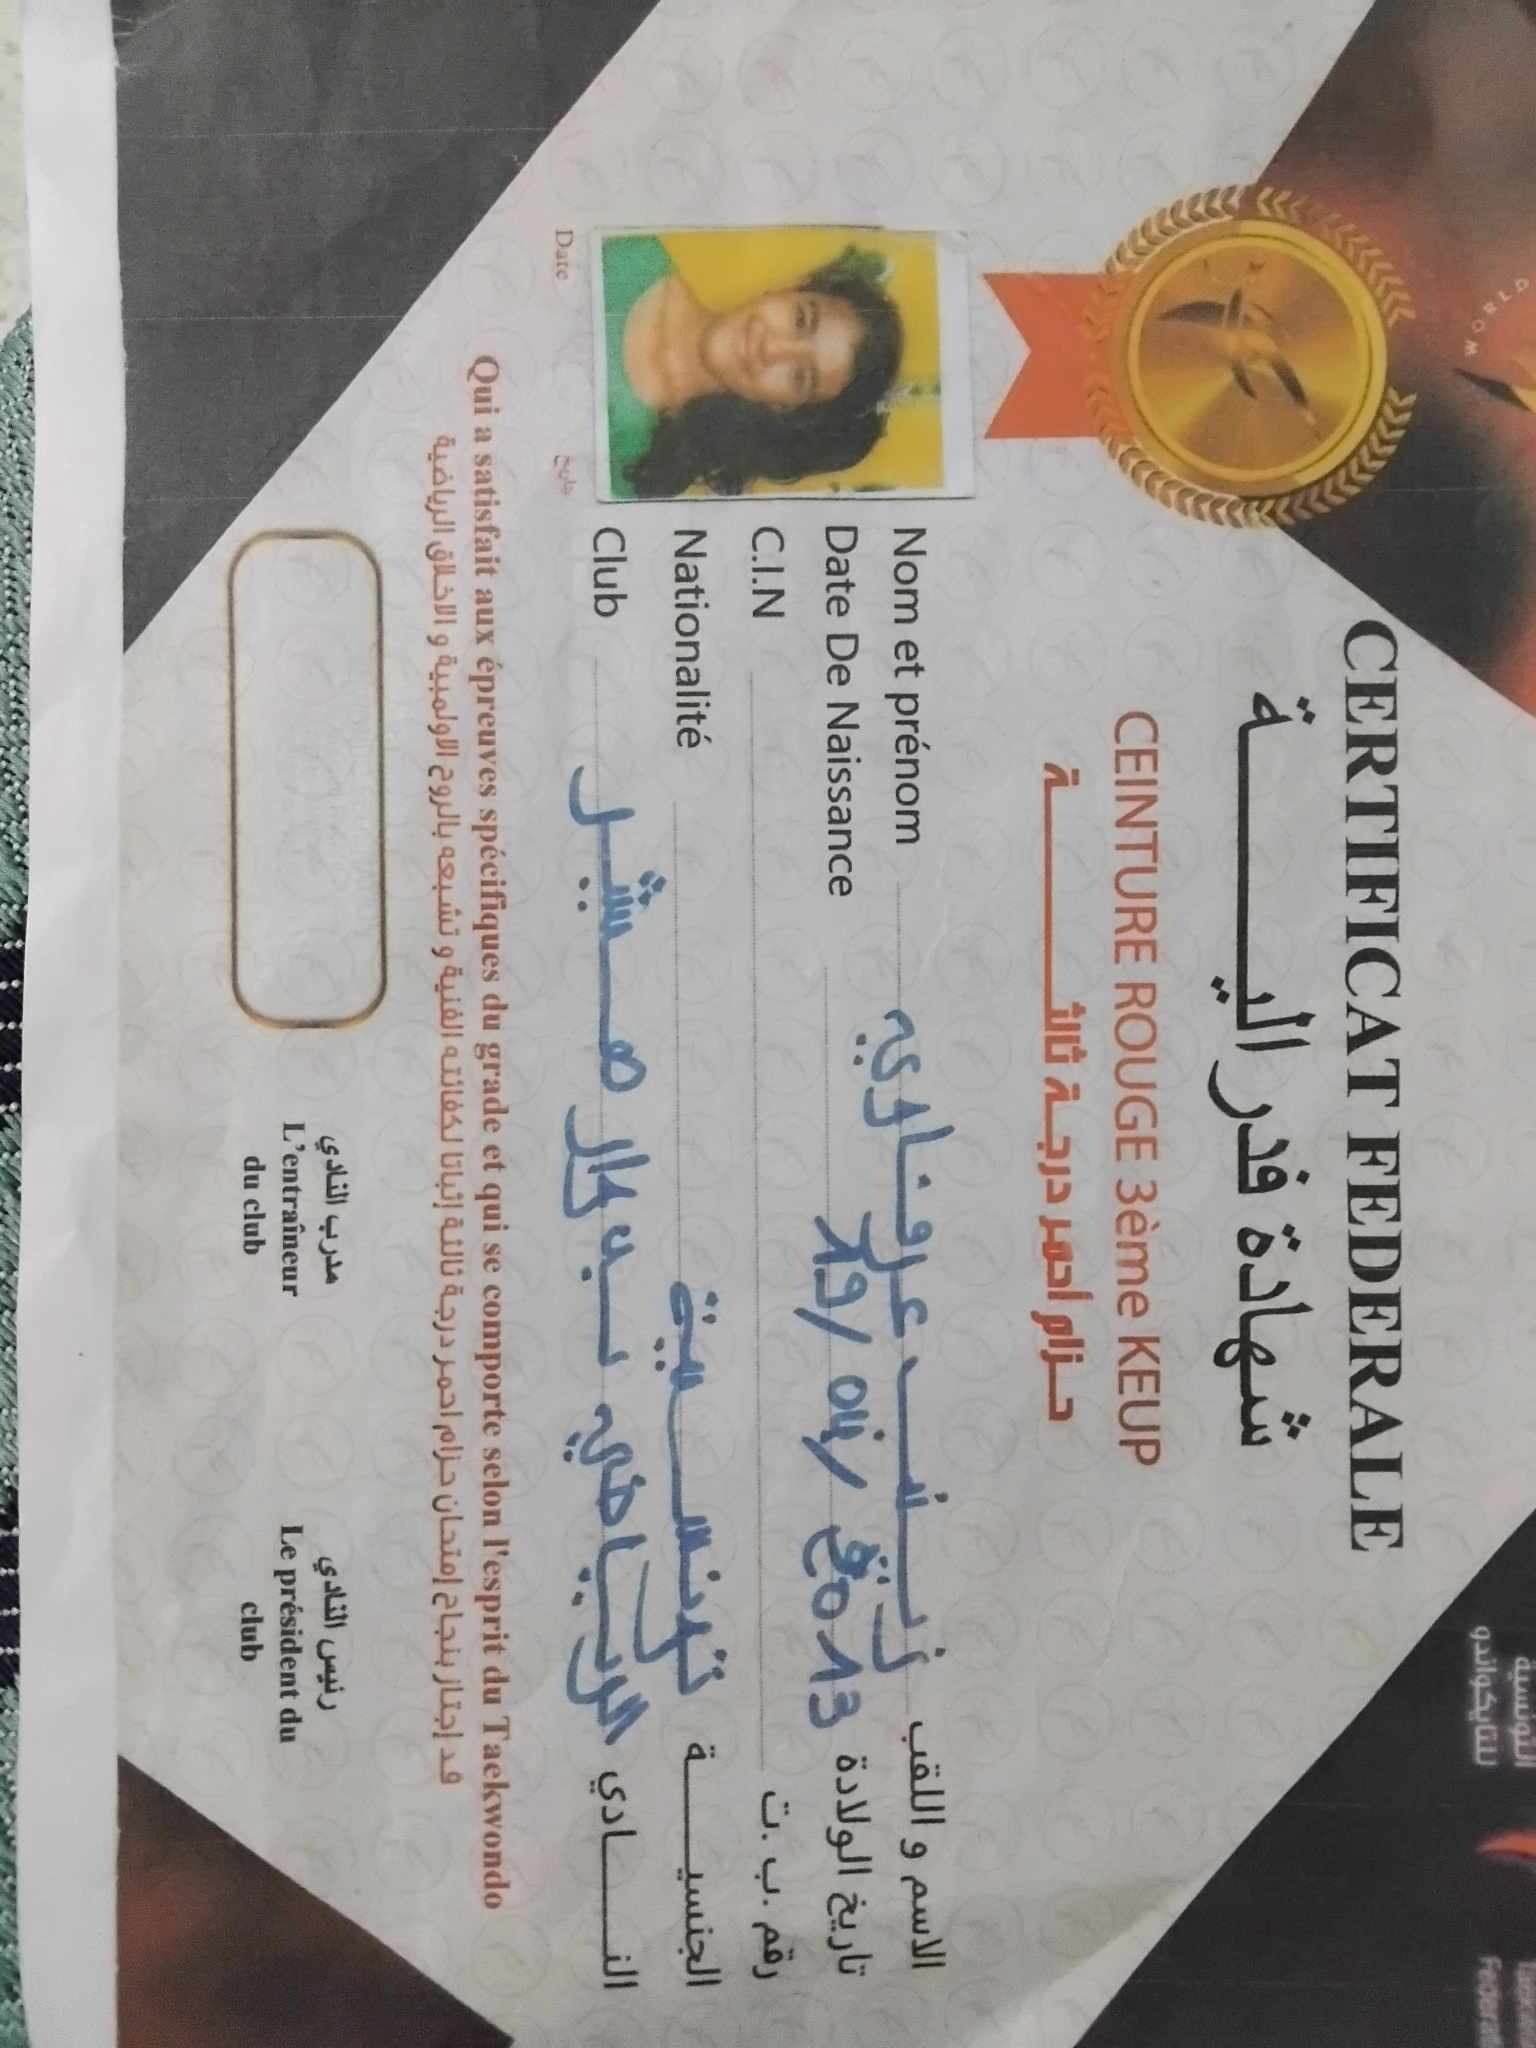 WORLD
التونسية
للتايكواندو
CERTIFICAT FEDERALE
شهادة فدرالية
CEINTURE ROUGE 3ème KEUP
حزام أحمر درجة ثالثة
Nom et prénom زينب عرفاوي الاسم و اللقب
Date De Naissance 19/04/2013 تاريخ الولادة
C.I.N رقم .ب .ت
Nationalité تونسية الجنسية
Club الرياضي النادي
Date تاريخ
Qui a satisfait aux épreuves spécifiques du grade et qui se comporte selon l'esprit du Taekwondo
قد إجتاز بنجاح إمتحان حزام احمر درجة ثالثة إثباتا لكفائته الفنية و تشبعه بالروح الاولمبية و الاخلاق الرياضية
مدرب النادي
L'entraîneur
du club
رئيس النادي
Le président du
club